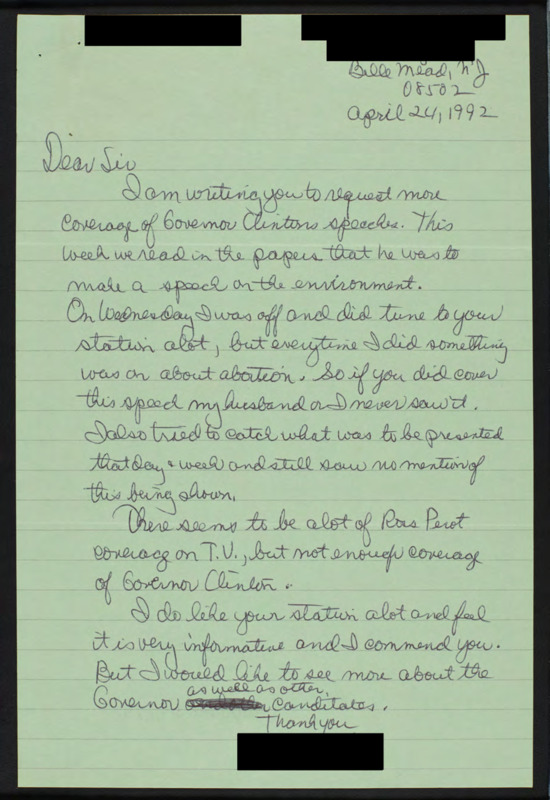 Belle Mead, NJ
08502
April 24, 1992
Dear Sir
I am writing you to request more
coverage of Governor Clintons speeches. This
week we read in the papers that he was to
make a speech on the environment.
On Wednesday I was off and did tune to your
station alot, but everytime I did something
was on about abortion. So if you did cover
this speech my husband or I never saw it.
I also tried to catch what was to be presented
that day & week and still saw no mention of
this being shown.
There seems to be alot of Ross Perot
coverage on T.V., but not enough coverage
of Governor Clinton.
I do like your station alot and feel
it is very informative and I commend you.
But I would like to see more about the
as well as other,
Governor canditates.
Thank you